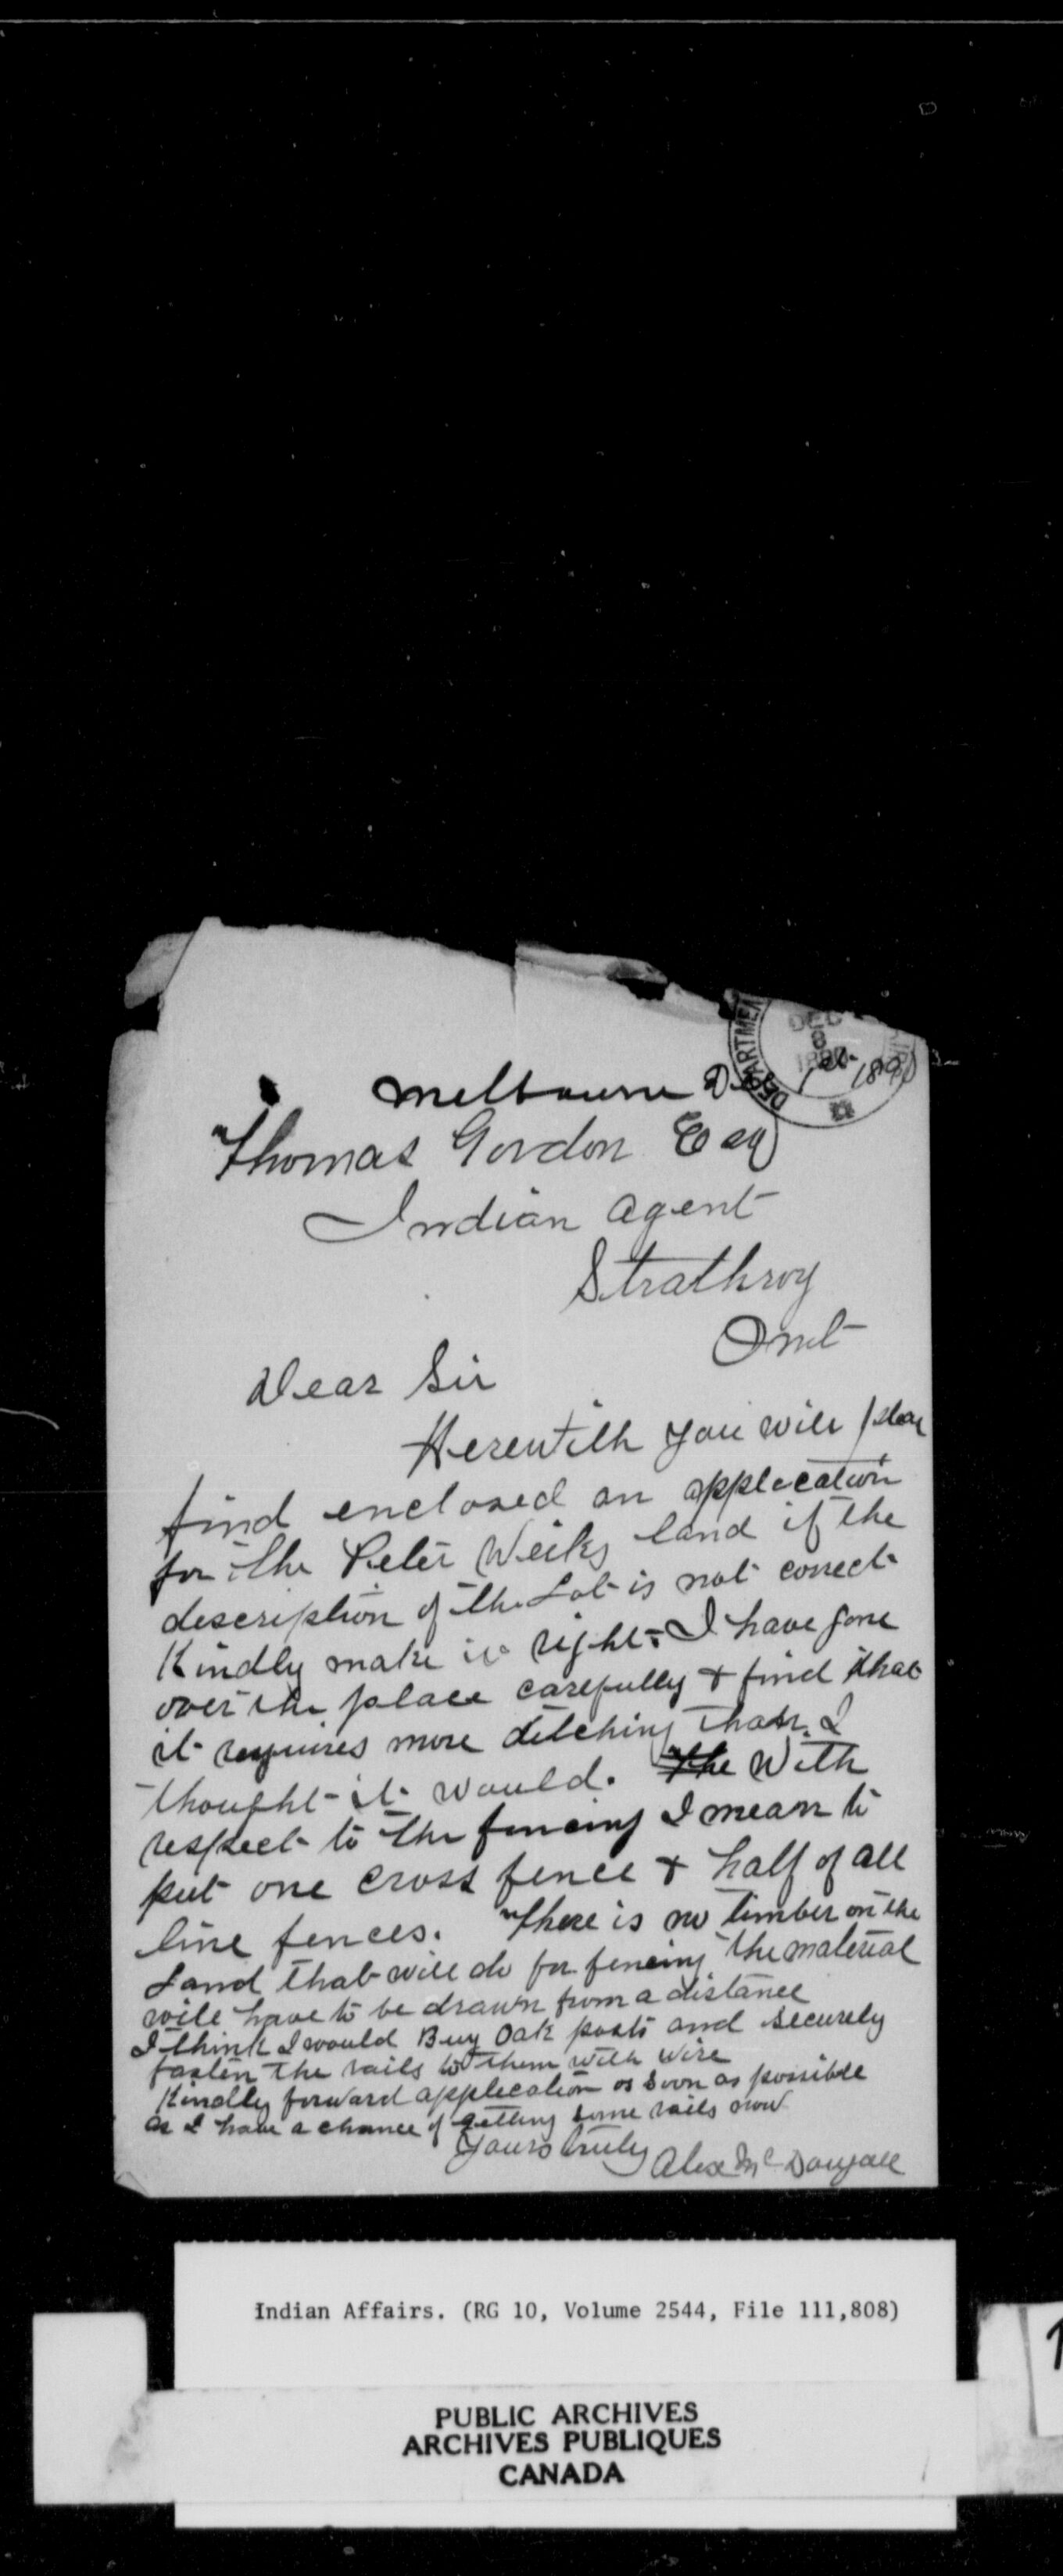 DEPARTMEN
DEC
8
Melbourne Dec 1st 1890
Thomas Gordon Esq
Indian Agent
Strathroy
Ont
Dear Sir
Herewith you will pleas
find enclosed an application
for the Peter Weeks land if the
description of the Lot is not correct
Kindly make it right. I have gone
over the place carefully & find that
it requires more ditching than I
thought it would. The With
respect to the fencing I mean to
put one cross fence & half of all
line fences. There is no timber on the
Land that will do for fencing the material
will have to be drawn from a distance
I think I would Buy Oak posts and securely
fasten the rails to them with wire
Kindly forward application as soon as possible
as I have a chance of getting some rails now
Yours truly Alex McDougall
Indian Affairs. (RG 10, Volume 2544, File 111,808)
PUBLIC ARCHIVES
ARCHIVES PUBLIQUES
CANADA